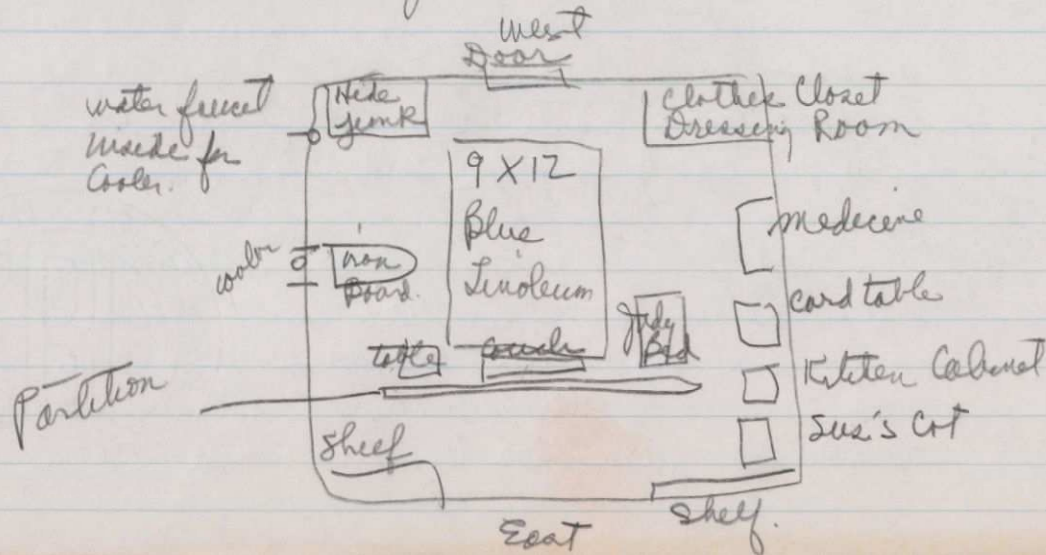 West
Door
water faucet
inside for
Cooler.
Hide
junk
Clothes Closet
Dressing Room
9 X 12
Blue
Linoleum
medicine
cooler
iron
Board.
card table
Judy
Bed
table
couch
Kitchen Cabinet
Partition
Sus's Cot
Shelf
Shelf.
East